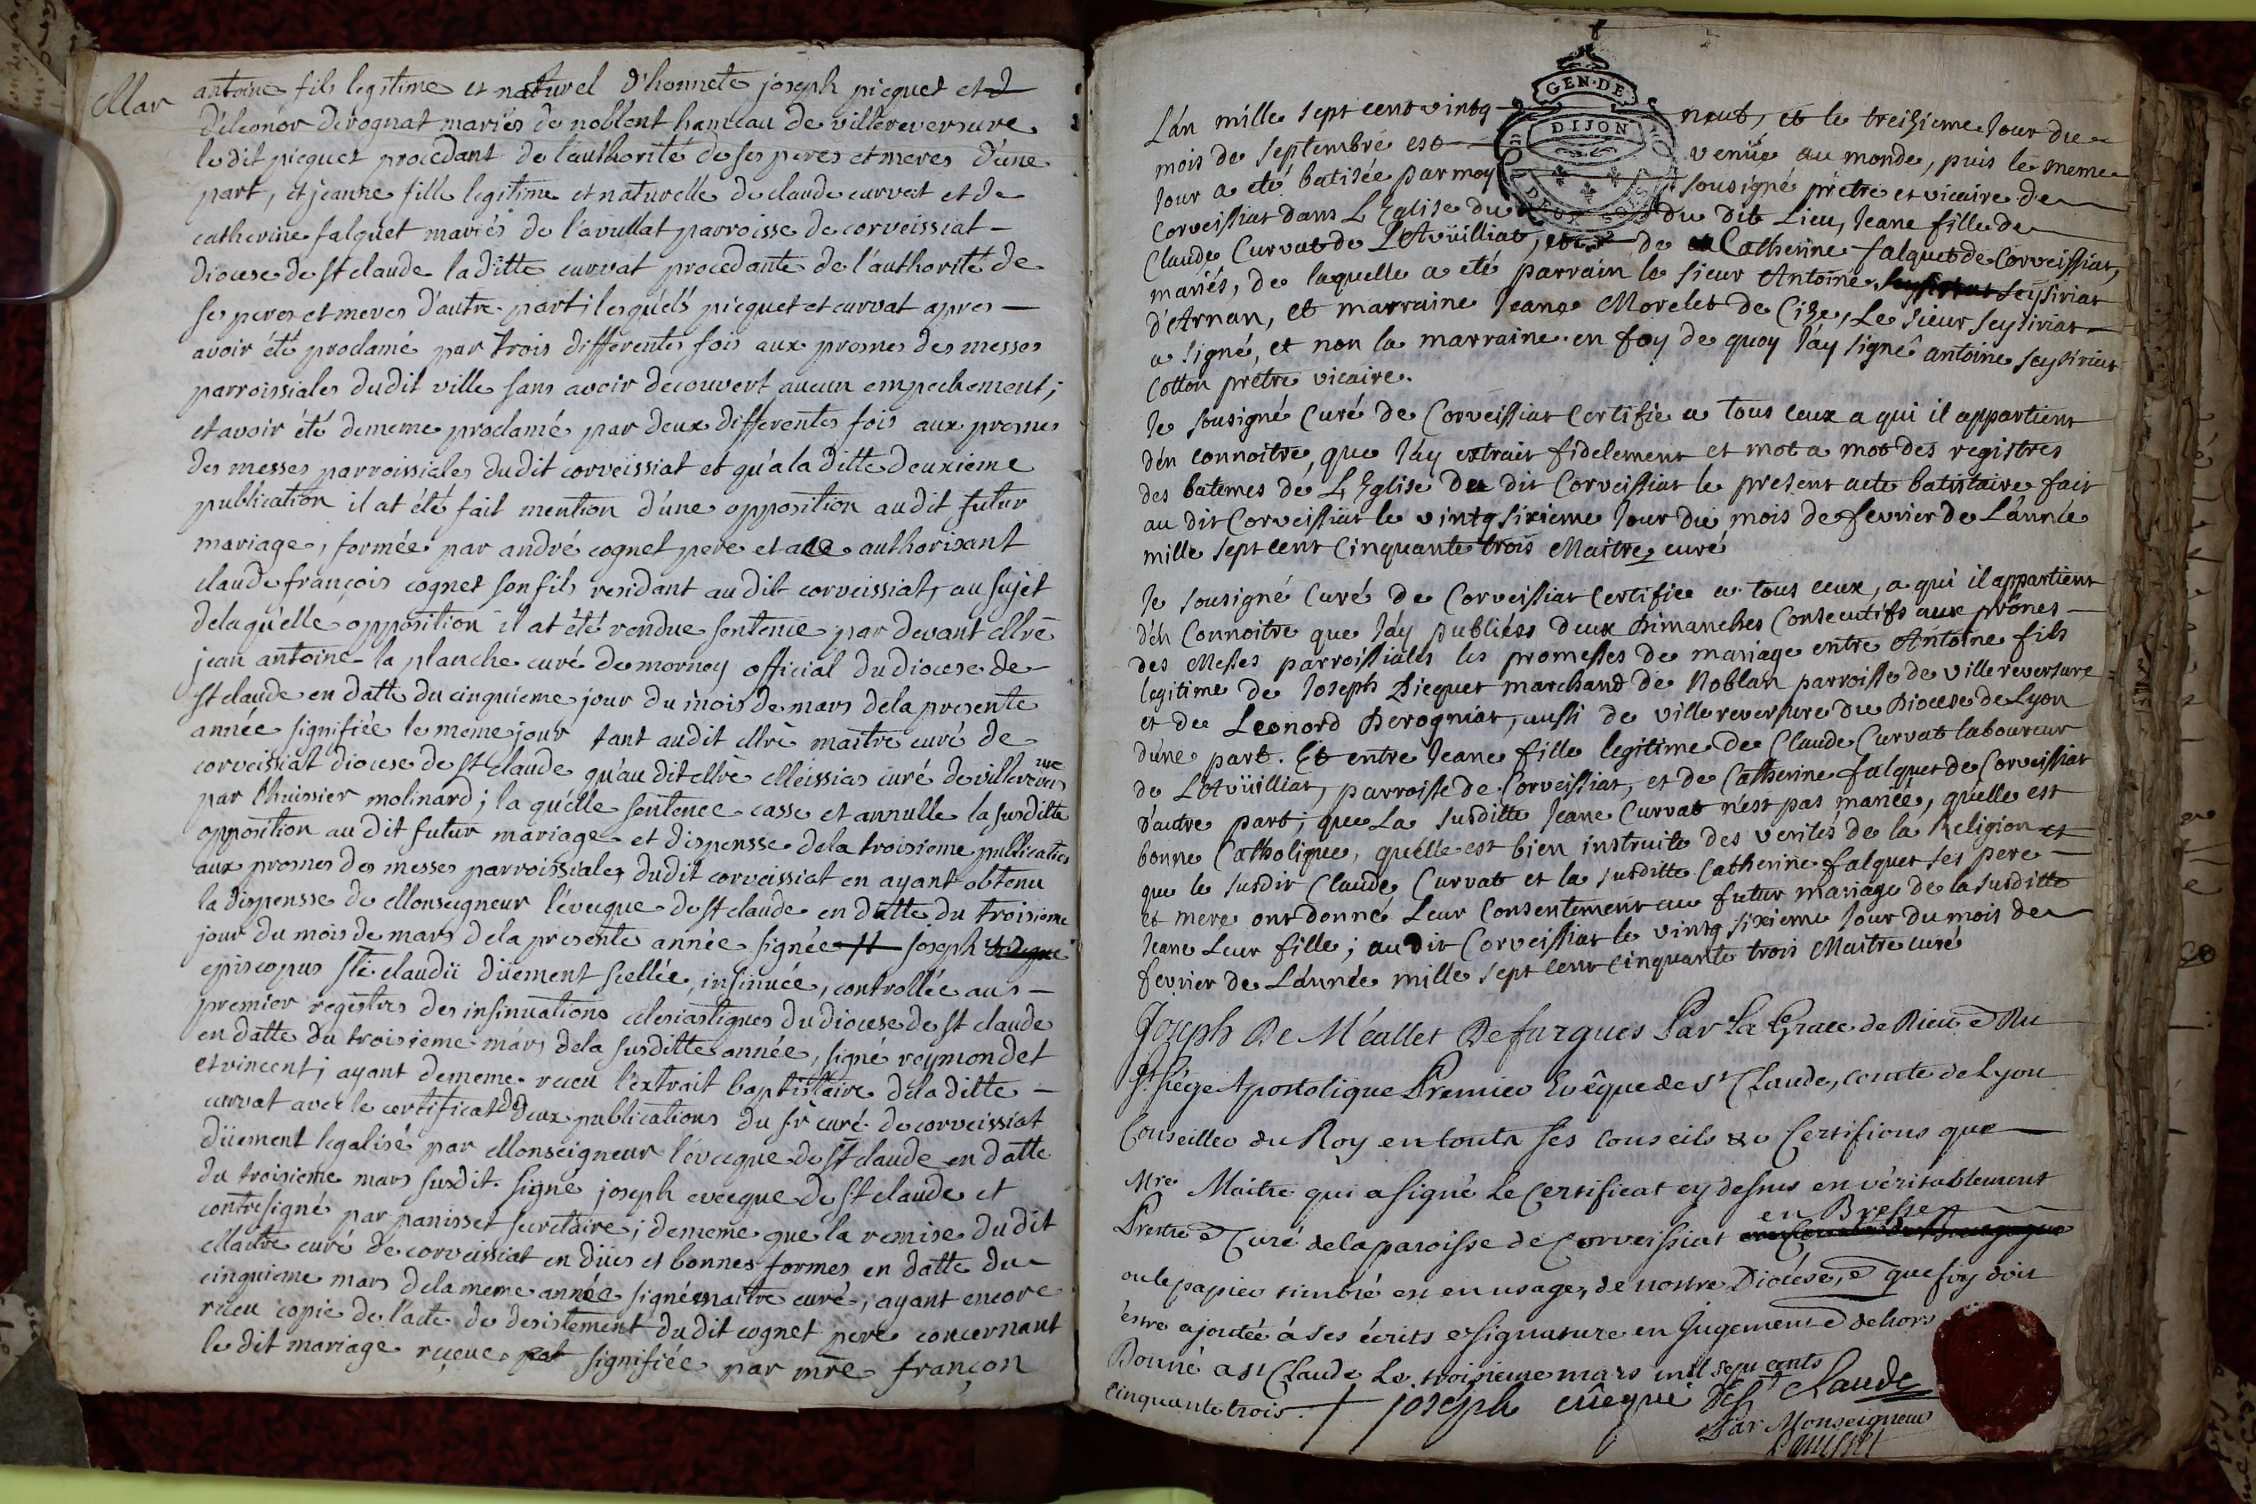 Mar
antoine fils legitime et naturel d'honnete joseph picquet et d
d'eleonor derognat mariés de noblent hameau de villereversure
le dit picquet procedant de l'authorité de ses peres et meres d'une
part, et jeanne fille legitime et naturelle de claude curvat et de
catherine falquet mariés de l'avullat parroisse de corveissiat
diocese de st claude la ditte curvat procedante de l'authorité de
ses peres et meres d'autre part; lesquels picquet et curvat apres
avoir été proclamé par trois differentes fois aux prosnes des messes
parroissiales dudit ville sans avoir decouvert aucun empechement;
et avoir été dememe proclamé par deux differentes fois aux prosnes
des messes parroissiales dudit corveissiat et qu'a la ditte deuxieme
publication il at été fait mention d'une opposition audit futur
mariage, formée par andré cognet pere et authorisant
claude françois cognet son fils residant audit corveissiat, au sujet
delaquelle opposition il at été rendue sentence par devant Mre
jean antoine la planche curé de mornay official du diocese de
st claude en datte du cinquieme jour du mois de mars dela presente
année signifiée le meme jour tant audit Mre maitre curé de
corveissiat diocese de st claude qu'au dit Mre Meissias curé de villerevers ure
par l'huissier molinard; la quelle sentence casse et annulle la susditte
opposition au dit futur mariage et dispensse dela troisieme publication
aux prosnes des messes parroissiales dudit corveissiat en ayant obtenu
la dispensse de Monseigneur l'évecque de st claude en datte du troisieme
jour du mois de mars dela presente année signée joseph
episcopus sti claudii düement scellée, insinuée, controllée aux
premier registres des insinuations eclesiastiques du diocese de st claude
en datte du troisieme mars dela susditte année, signé reymondet
et vincent; ayant dememe receu l'extrait baptistaire dela ditte
curvat avec le certificat de deux publications du sr curé de corveissiat
düement legalisé par Monseigneur l'évecque de st claude en datte
du troisieme mars susdit. signe joseph evecque de st claude et
contresigné par panisset secretaire; dememe que la remise du dit
Maitre curé de corveissiat en dües et bonnes formes en datte du
cinquieme mars dela meme année signé maitre curé; ayant encore
receu copie de l'acte de desistement du dit cognet pere concernant
le dit mariage reçeue signifiée par mre françon
GEN·DE
DIJON
DEUX SOLS
L'an mille sept cent vintq neuf, et le treizieme Jour du
mois de septembre est venüe au monde, puis le meme
Jour a eté batisée par moy sousigné prêtre et vicaire de
Corveissiat dans L'Eglise du du dit Lieu, Jeane fille de
Claude Curvat de L'Avüilliat, de Catherine falquet de Corveissiat,
mariés, de laquelle a eté parrain le sieur Antoine Seysiriat
d'Arnan, et marraine Jeane Morelet de Cize, Le sieur seysiriat
a signé, et non la marraine en foy de quoy J'ay signé antoine seysiriat
Cotton prêtre vicaire.
Je sousigné Curé de Corveissiat Certifie a tous ceux a qui il appartient
d'en connoitre, que J'ay extrait fidelement et mot a mot des registres
des batemes de L'Eglise du dit Corveissiat le present acte batistaire fait
au dit Corveissiat le vintq sixieme Jour du mois de fevrier de L'année
mille sept cent Cinquante trois Maitre curé
Je sousigné Curé de Corveissiat Certifie a tous ceux, a qui il appartient
d'en Connoitre que J'ay publiées deux Dimanches Consecutifs aux prônes
des Messes parroissiales les promesses de mariage entre Antoine fils
legitime de Joseph Picquet marchand de Noblan parroisse de villereversure
et de Leonord Derogniat, aussi de villereversure du Diocese de Lyon
d'une part. Et entre Jeane fille legitime de Claude Curvat laboureur
de L'Avüilliat, parroisse de Corveissiat, et de Catherine falquet de Corveissiat
d'autre part; que La susditte Jeane Curvat n'est pas mariée, qu'elle est
bonne Catholique, qu'elle est bien instruite des verités de la Religion et
que le susdit Claude Curvat et la susditte Catherine falquet ses pere
et mere ont donné Leur Consentement au futur mariage de la susditte
Jeane Leur fille; au dit Corveissiat le vintq sixieme Jour du mois de
fevrier de L'année mille sept cent cinquante trois Maitre curé
Joseph De Méallet Defargues Par La Grace de Dieu & Du
St Siége Apostolique Premier Evêque de St Claude, comte de Lyon
Conseiller du Roy en touts ses conseils &c Certifions que
Mre Maitre qui a signé Le Certificat cy dessus en véritablement
en Bresse
Prestre & Curé de la paroisse de Corveissiat
ou le papier timbré est en usage, de nostre Diocése, & que foy doit
éstre ajoutée à ses écrits & signature en Jugement & dehors
Donné a St Claude Le troisieme mars mil sept cents
cinquante trois. † joseph evêque de st claude
Par Monseigneur
Panisset